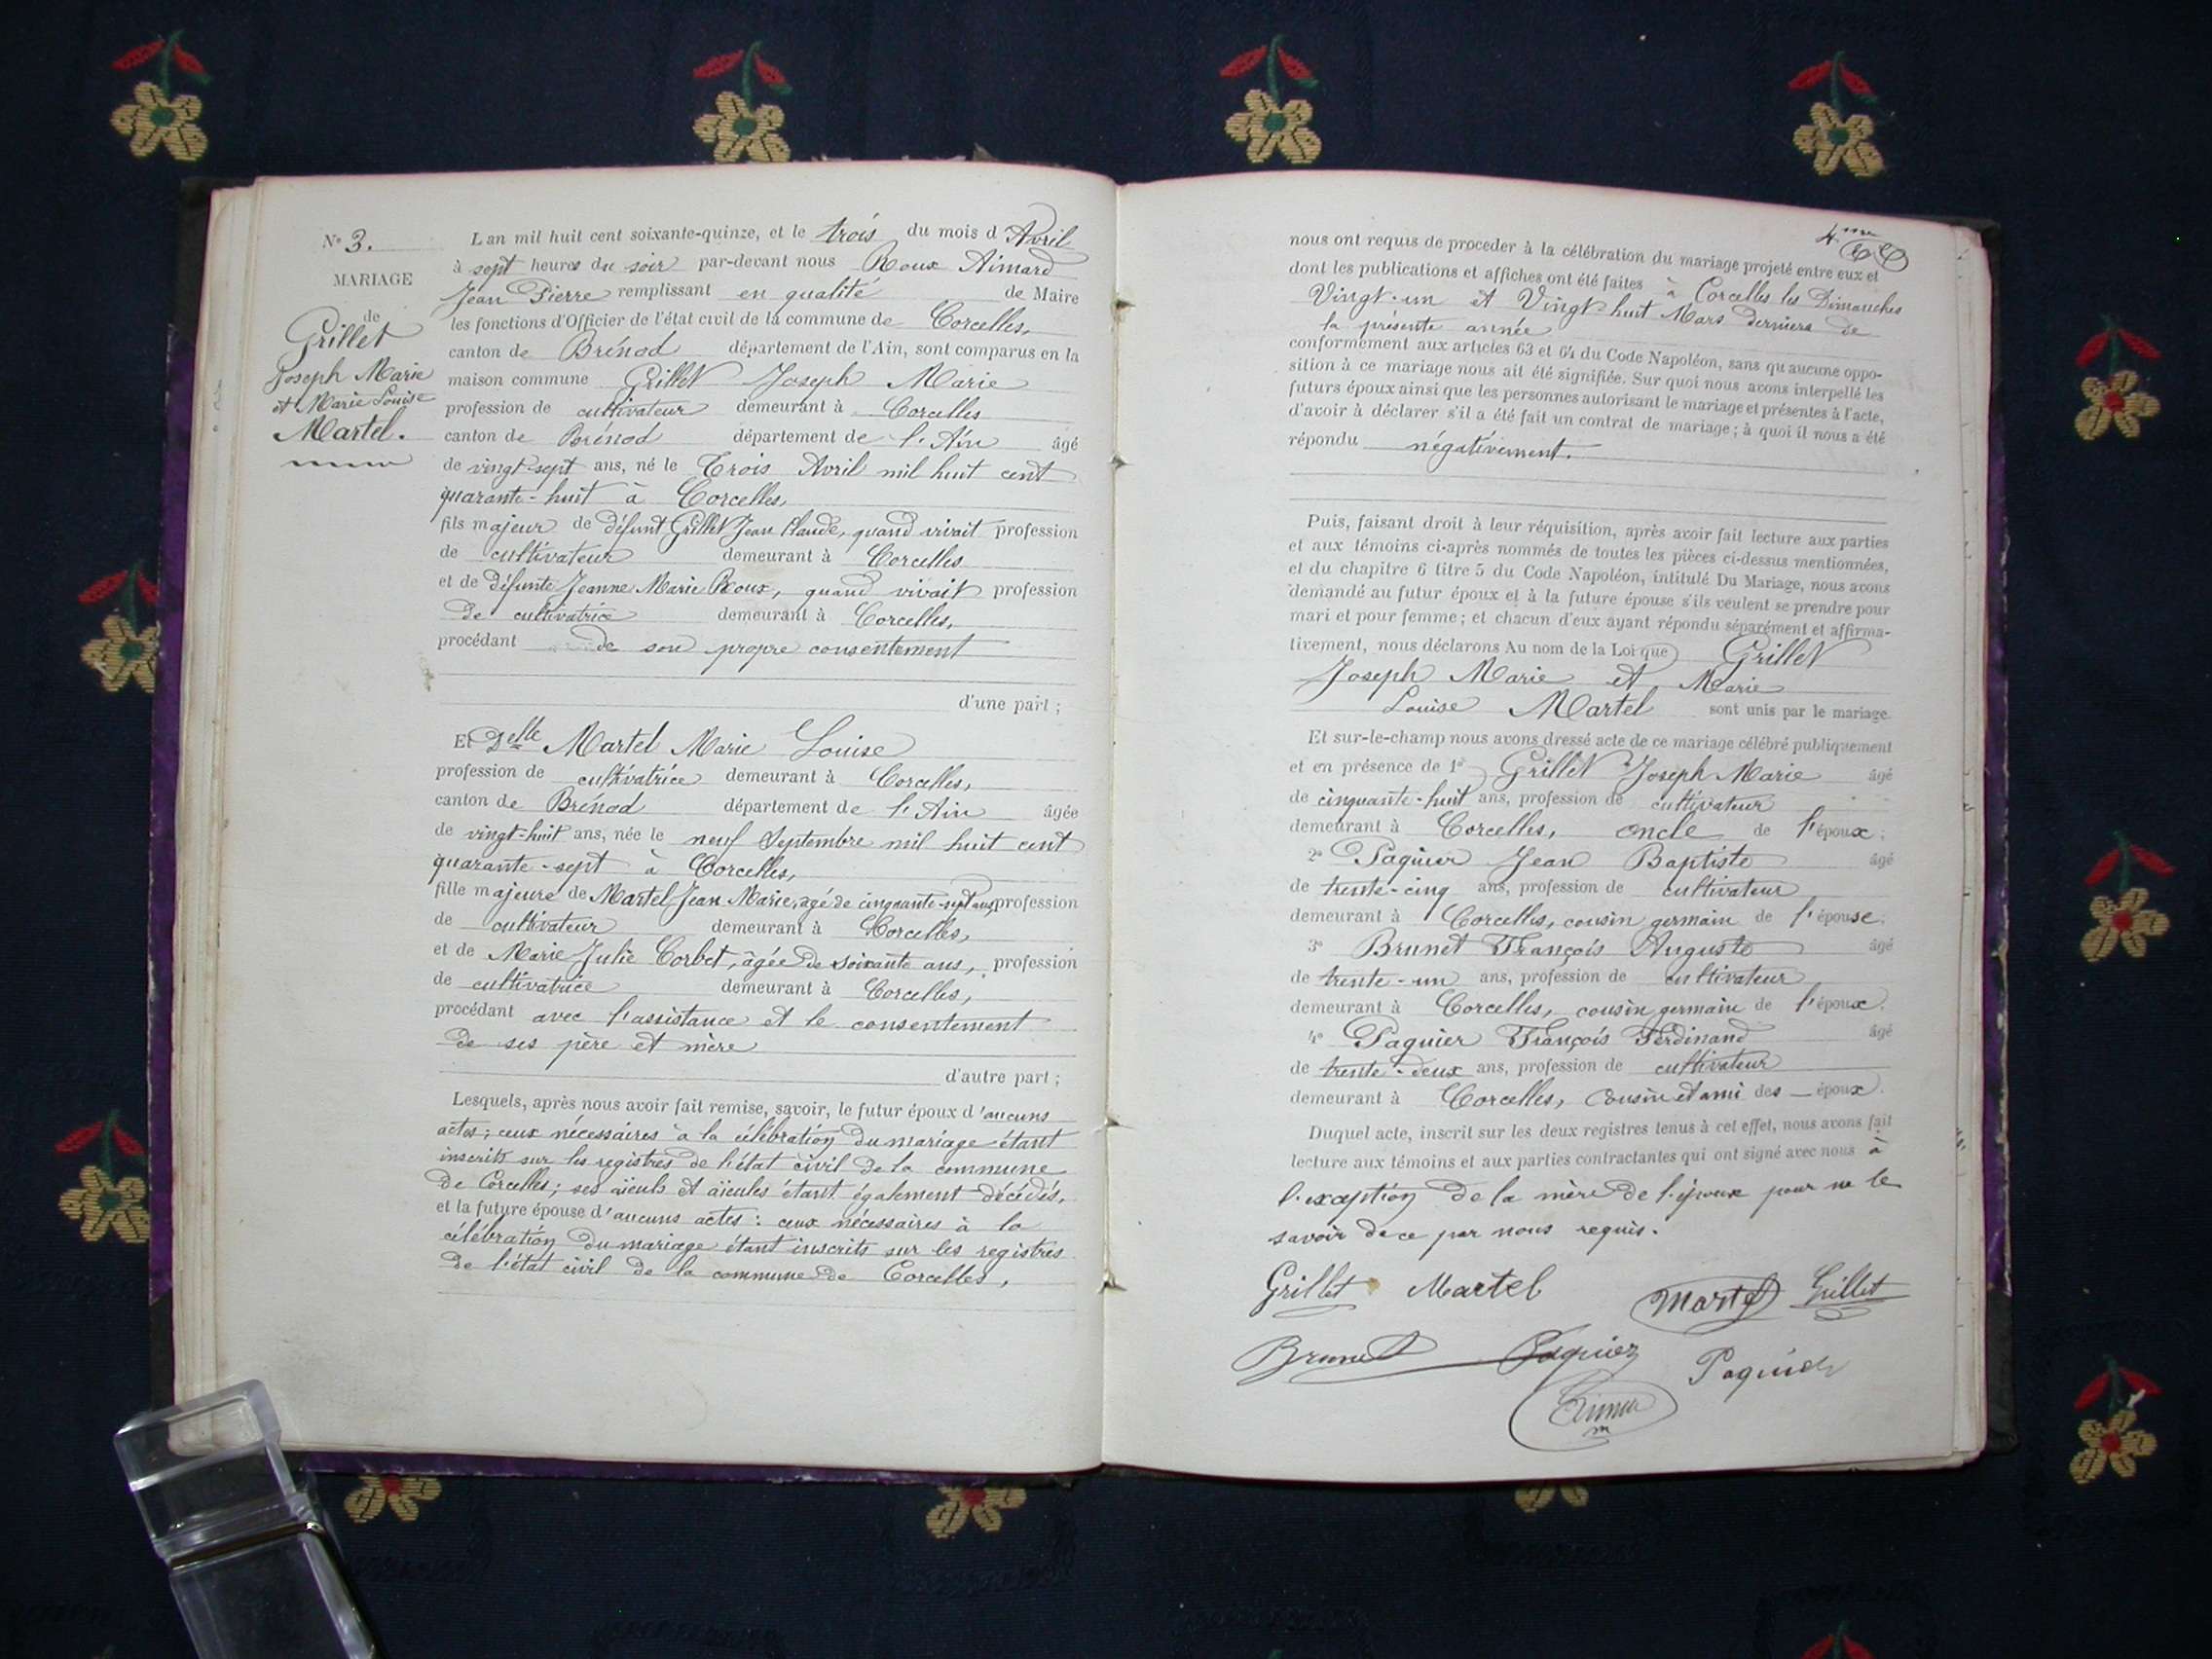 N° 3.
MARIAGE
de
Grillet
Joseph Marie
et Marie Louise
Martel.
L'an mil huit cent soixante-quinze, et le trois du mois d'Avril
à sept heures du soir par-devant nous Roux Aimard
Jean Pierre remplissant en qualité de Maire
les fonctions d'Officier de l'état civil de la commune de Corcelles,
canton de Brénod département de l'Ain, sont comparus en la
maison commune Grillet Joseph Marie
profession de cultivateur demeurant à Corcelles
canton de Brénod département de l'Ain âgé
de vingt-sept ans, né le Trois Avril mil huit cent
quarante-huit à Corcelles,
fils majeur de défunt Grillet Jean Claude, quand vivait profession
de cultivateur demeurant à Corcelles
et de défunte Jeanne Marie Roux, quand vivait profession
de cultivatrice demeurant à Corcelles,
procédant de son propre consentement
d'une part ;
Et Delle Martel Marie Louise
profession de cultivatrice demeurant à Corcelles,
canton de Brénod département de l'Ain âgée
de vingt-huit ans, née le neuf Septembre mil huit cent
quarante-sept à Corcelles,
fille majeure de Martel Jean Marie, agé de cinquante-sept ans, profession
de cultivateur demeurant à Corcelles,
et de Marie Julie Corbet, âgée de soixante ans, profession
de cultivatrice demeurant à Corcelles,
procédant avec l'assistance et le consentement
de ses père et mère
d'autre part ;
Lesquels, après nous avoir fait remise, savoir, le futur époux d'aucuns
actes ; ceux nécessaires à la célébration du mariage étant
inscrits sur les registres de l'état civil de la commune
de Corcelles ; ses aïeuls et aïeules étant également décédés,
et la future épouse d'aucuns actes : ceux nécessaires à la
célébration du mariage étant inscrits sur les registres
de l'état civil de la commune de Corcelles,
4me
nous ont requis de procéder à la célébration du mariage projeté entre eux et
dont les publications et affiches ont été faites à Corcelles les Dimanches
Vingt-un et Vingt huit Mars derniers de
la présente année
conformément aux articles 63 et 64 du Code Napoléon, sans qu'aucune oppo-
sition à ce mariage nous ait été signifiée. Sur quoi nous avons interpellé les
futurs époux ainsi que les personnes autorisant le mariage et présentes à l'acte,
d'avoir à déclarer s'il a été fait un contrat de mariage ; à quoi il nous a été
répondu négativement.
Puis, faisant droit à leur réquisition, après avoir fait lecture aux parties
et aux témoins ci-après nommés de toutes les pièces ci-dessus mentionnées,
et du chapitre 6 titre 5 du Code Napoléon, intitulé Du Mariage, nous avons
demandé au futur époux et à la future épouse s'ils veulent se prendre pour
mari et pour femme ; et chacun d'eux ayant répondu séparément et affirma-
tivement, nous déclarons Au nom de la Loi que Grillet
Joseph Marie et Marie
Louise Martel sont unis par le mariage.
Et sur-le-champ nous avons dressé acte de ce mariage célébré publiquement
et en présence de 1° Grillet Joseph Marie âgé
de cinquante-huit ans, profession de cultivateur
demeurant à Corcelles, oncle de l'époux ;
2° Paquier Jean Baptiste âgé
de trente-cinq ans, profession de cultivateur
demeurant à Corcelles, cousin germain de l'épouse.
3° Brunet François Auguste âgé
de trente-un ans, profession de cultivateur
demeurant à Corcelles, cousin germain de l'époux.
4° Paquier François Ferdinand âgé
de trente-deux ans, profession de cultivateur
demeurant à Corcelles, cousin et ami des — époux.
Duquel acte, inscrit sur les deux registres tenus à cet effet, nous avons fait
lecture aux témoins et aux parties contractantes qui ont signé avec nous à
l'exception de la mère de l'époux pour ne le
savoir de ce par nous requis.
Grillet Martel Martel Grillet
Brunet Paquier Paquier